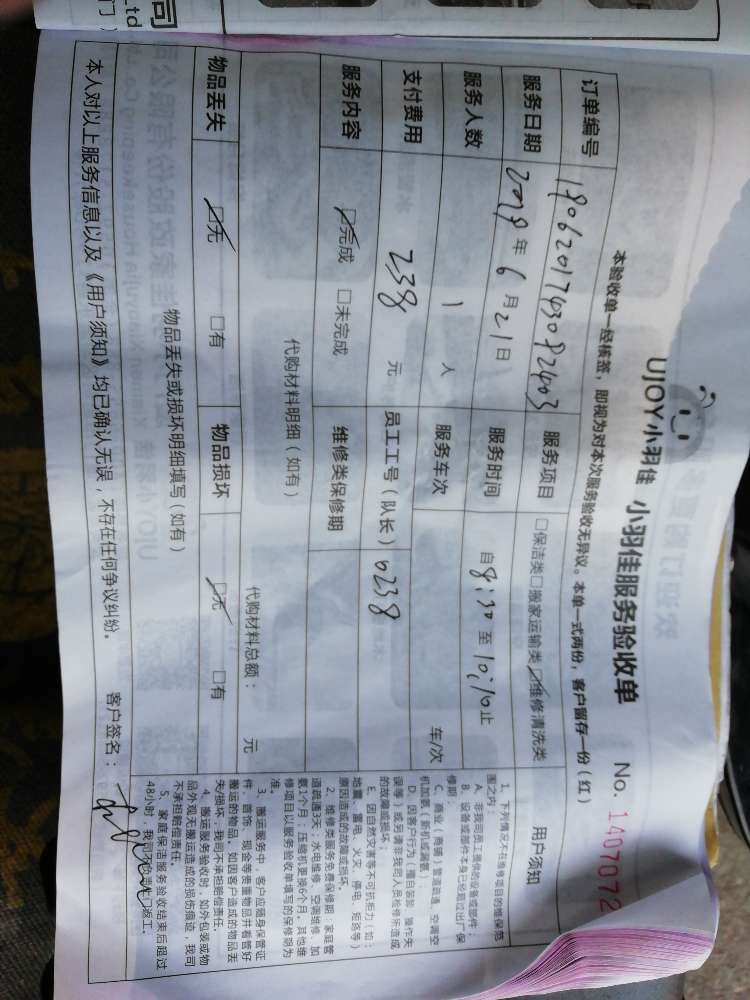 UJOY小羽佳 小羽佳服务验收单 No. 1407072
本验收单一经核签，即视为对本次服务验收无异议。本单一式两份，客户留存一份（红）
订单编号 180620174308 2403 服务项目 □保洁类□搬家运输类☑维修清洗类
服务日期 2018年6月21日 服务时间 自8:30至10:10止
服务人数 1 人 服务车次 车/次
支付费用 238 元 员工工号（队长） 0238
服务内容 ☑完成 □未完成 维修类保修期
代购材料明细（如有） 代购材料总额： 元
物品丢失 ☑无 □有 物品损坏 ☑无 □有
物品丢失或损坏明细填写（如有）
本人对以上服务信息以及《用户须知》均已确认无误，不存在任何争议纠纷。 客户签名：
用户须知
1、下列情况不在维修项目的维保范
围之内：
A、非我司员工提供的设备或部件；
B、设备或部件本身已经超过出厂保
修期；
C、商业（商铺）管道疏通、空调空
机加氨（新机或漏氨）；
D、因客户行为（擅自装卸、操作失
误等）或另请非我司人员检修所造成
的故障或损坏；
E、因自然灾害等不可抗拒力（如：
地震、雷电、火灾、停电、短路等）
原因造成的故障或损坏。
2、维修类服务免费保修期：家庭管
道疏通3天，水电维修、空调维修、加
氨1个月；压缩机更换6个月，其他维
修项目以服务验收单填写的保修期为
准。
3、搬运服务中，客户应随身保管证
件、首饰、现金等贵重物品并看管好
搬运的物品。如因客户造成的物品丢
失/损坏，我司不承担赔偿责任。
4、搬运服务验收时，如外包装或物
品外观无搬运造成的损伤痕迹，我司
不承担赔偿责任。
5、家庭保洁服务验收结束后超过
48小时，我司不负责上门返工。